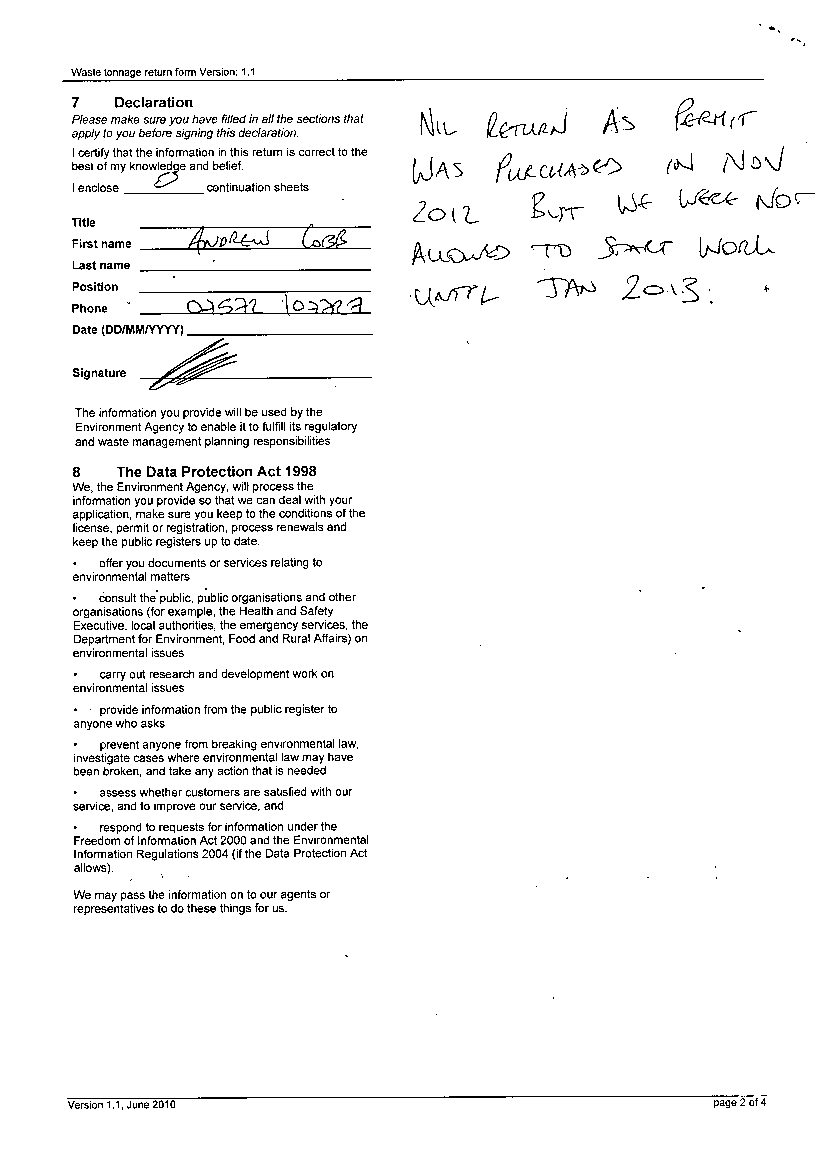 Waste tonnage return form Version: 1.1
7 Declaration
Please make sure you have filled in all the sections that
apply to you before signing this declaration.
I certify that the information in this return is correct to the
best of my knowledge and belief.
I enclose 0 continuation sheets
Title
First name ANDREW COBB
Last name
Position
Phone
Date (DD/MM/YYYY)
Signature
The information you provide will be used by the
Environment Agency to enable it to fulfill its regulatory
and waste management planning responsibilities
8 The Data Protection Act 1998
We, the Environment Agency, will process the
information you provide so that we can deal with your
application, make sure you keep to the conditions of the
license, permit or registration, process renewals and
keep the public registers up to date.
• offer you documents or services relating to
environmental matters
• consult the public, public organisations and other
organisations (for example, the Health and Safety
Executive, local authorities, the emergency services, the
Department for Environment, Food and Rural Affairs) on
environmental issues
• carry out research and development work on
environmental issues
• provide information from the public register to
anyone who asks
• prevent anyone from breaking environmental law,
investigate cases where environmental law may have
been broken, and take any action that is needed
• assess whether customers are satisfied with our
service, and to improve our service, and
• respond to requests for information under the
Freedom of Information Act 2000 and the Environmental
Information Regulations 2004 (if the Data Protection Act
allows).
We may pass the information on to our agents or
representatives to do these things for us.
NIL RETURN AS PERMIT
WAS PURCHASED IN NOV
2012 BUT WE WERE NOT
ALLOWED TO START WORK
UNTIL JAN 2013.
Version 1.1, June 2010
page 2 of 4